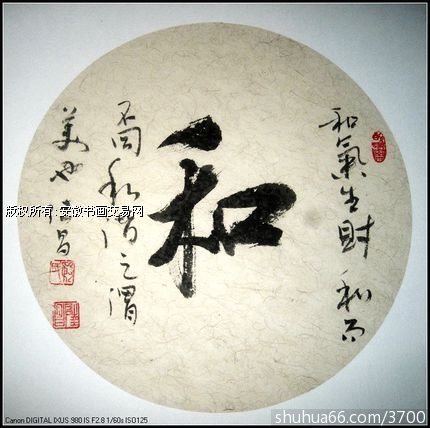 和氣生財 和而
和
不同 和谐之謂
美也
版权所有：安徽书画交易网
Canon DIGITAL IXUS 980 IS F2.8 1/60s ISO125
shuhua66.com/3700